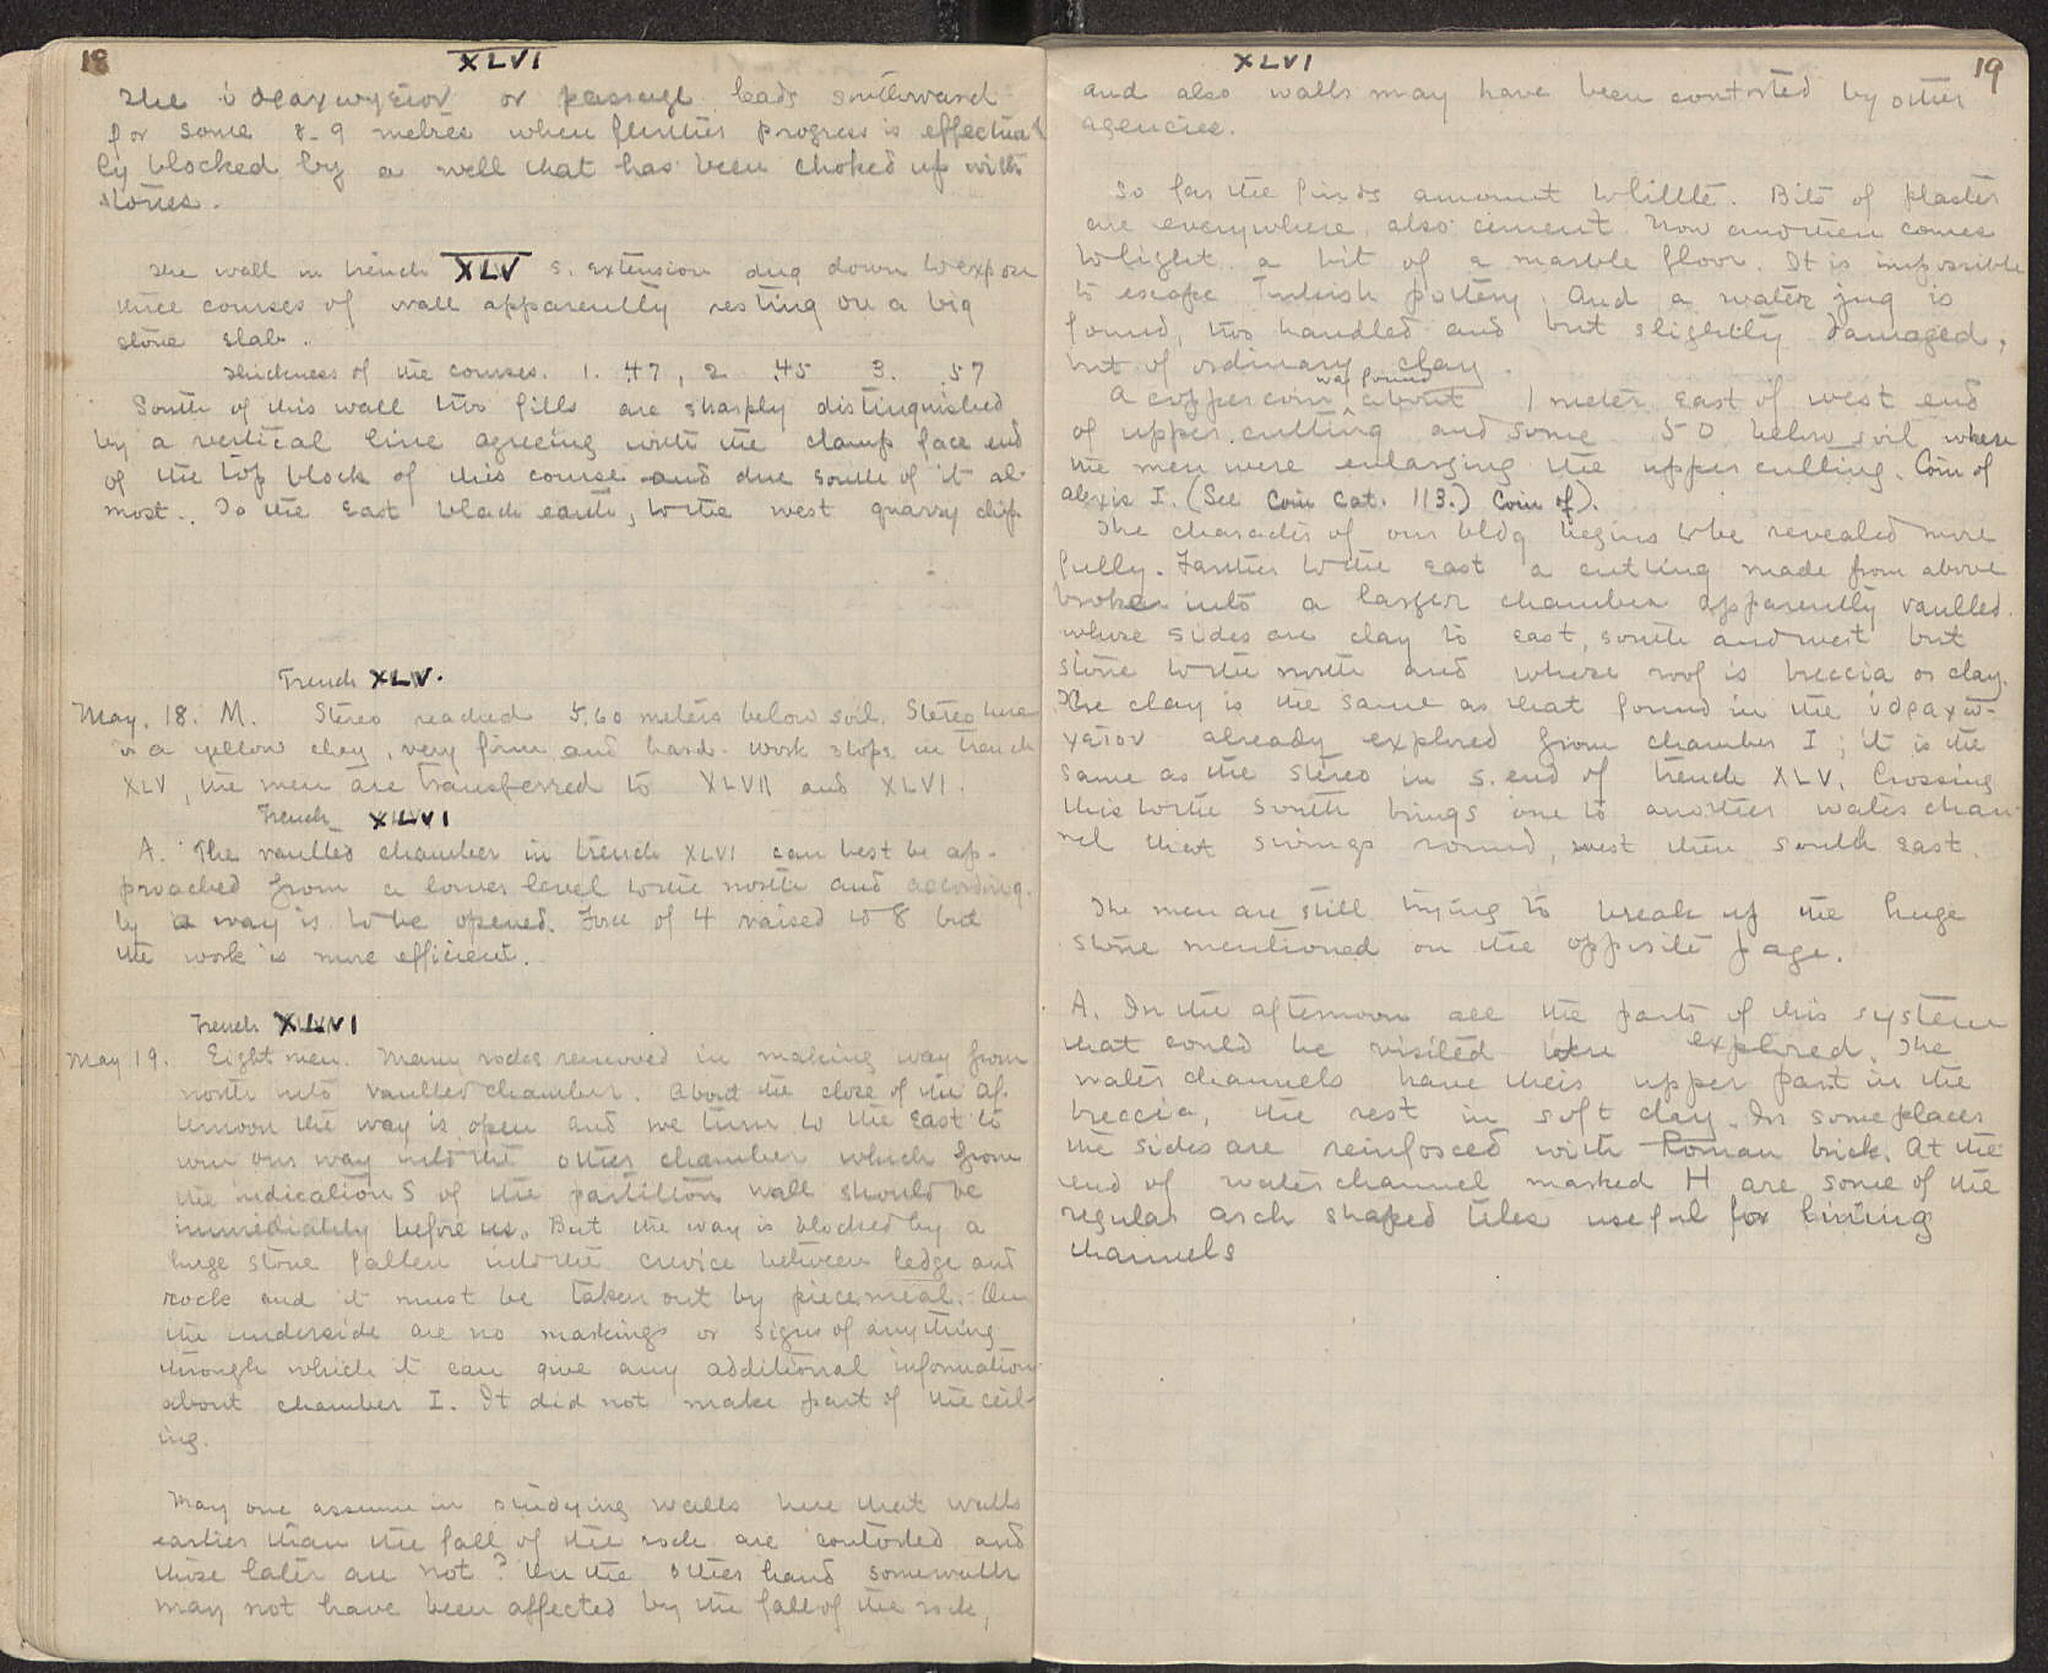 18
XLVI
The ὑδραγωγεῖον or passage leads southward
for some 8-9 metres when further progress is effectual
ly blocked by a well that has been choked up with
stones.
The wall in trench XLV S. extension dug down to expose
three courses of wall apparently resting on a big
stone slab.
Thickness of the courses. 1. .47, 2 .45 3. .57
South of this wall two fills are sharply distinguished
by a vertical line agreeing with the clamp face end
of the top block of this course and due south of it al-
most. To the East black earth, to the west quarry chip.
Trench XLV.
May. 18. M. Stereo reached 5.60 meters below soil. Stereo here
is a yellow clay, very firm and hard. Work stops in trench
XLV, the men are transferred to XLVII and XLVI.
Trench XLVI
A. The vaulted chamber in trench XLVI can best be ap-
proached from a lower level to the north and according-
ly a way is to be opened. Force of 4 raised to 8 but
the work is more efficient.
Trench XLVI
May 19. Eight men. Many rocks removed in making way from
north into vaulted chamber. About the close of the af-
ternoon the way is open and we turn to the East to
win our way into the other chamber which from
the indications of the partition wall should be
immediately before us. But the way is blocked by a
huge stone fallen into the crevice between ledge and
rock and it must be taken out by piecemeal. On
the underside are no markings or signs of anything
through which it can give any additional information
about chamber I. It did not make part of the ceil-
ing.
May one assume in studying walls here that walls
earlier than the fall of the rock are contorted and
those later are not? On the other hand some walls
may not have been affected by the fall of the rock,
XLVI
19
and also walls may have been contorted by other
agencies.
So far the finds amount to little. Bits of plaster
are everywhere, also cement. Now and then comes
to light a bit of a marble floor. It is impossible
to escape Turkish pottery. And a water jug is
found, two handled and but slightly damaged,
but of ordinary clay.
A copper coin was found about 1 meter East of west end
of upper cutting and some 50 below soil where
the men were enlarging the upper cutting. Coin of
Alexis I. (See Coin Cat. 113.) Coin of).
The character of our bldg begins to be revealed more
fully. Farther to the East a cutting made from above
broke into a larger chamber apparently vaulted.
whose sides are clay to east, south and west but
stone to the north and whose roof is breccia or clay.
The clay is the same as that found in the ὑδραγω-
γεῖον already explored from chamber I; it is the
same as the stereo in S. end of trench XLV. Crossing
this to the south brings one to another water chan-
nel that swings round, west then south east.
The men are still trying to break up the huge
stone mentioned on the opposite page.
A. In the afternoon all the parts of this system
that could be visited were explored. The
water channels have their upper part in the
breccia, the rest in soft clay. In some places
the sides are reinforced with Roman brick. At the
end of water channel marked H are some of the
regular arch shaped tiles useful for lining
channels